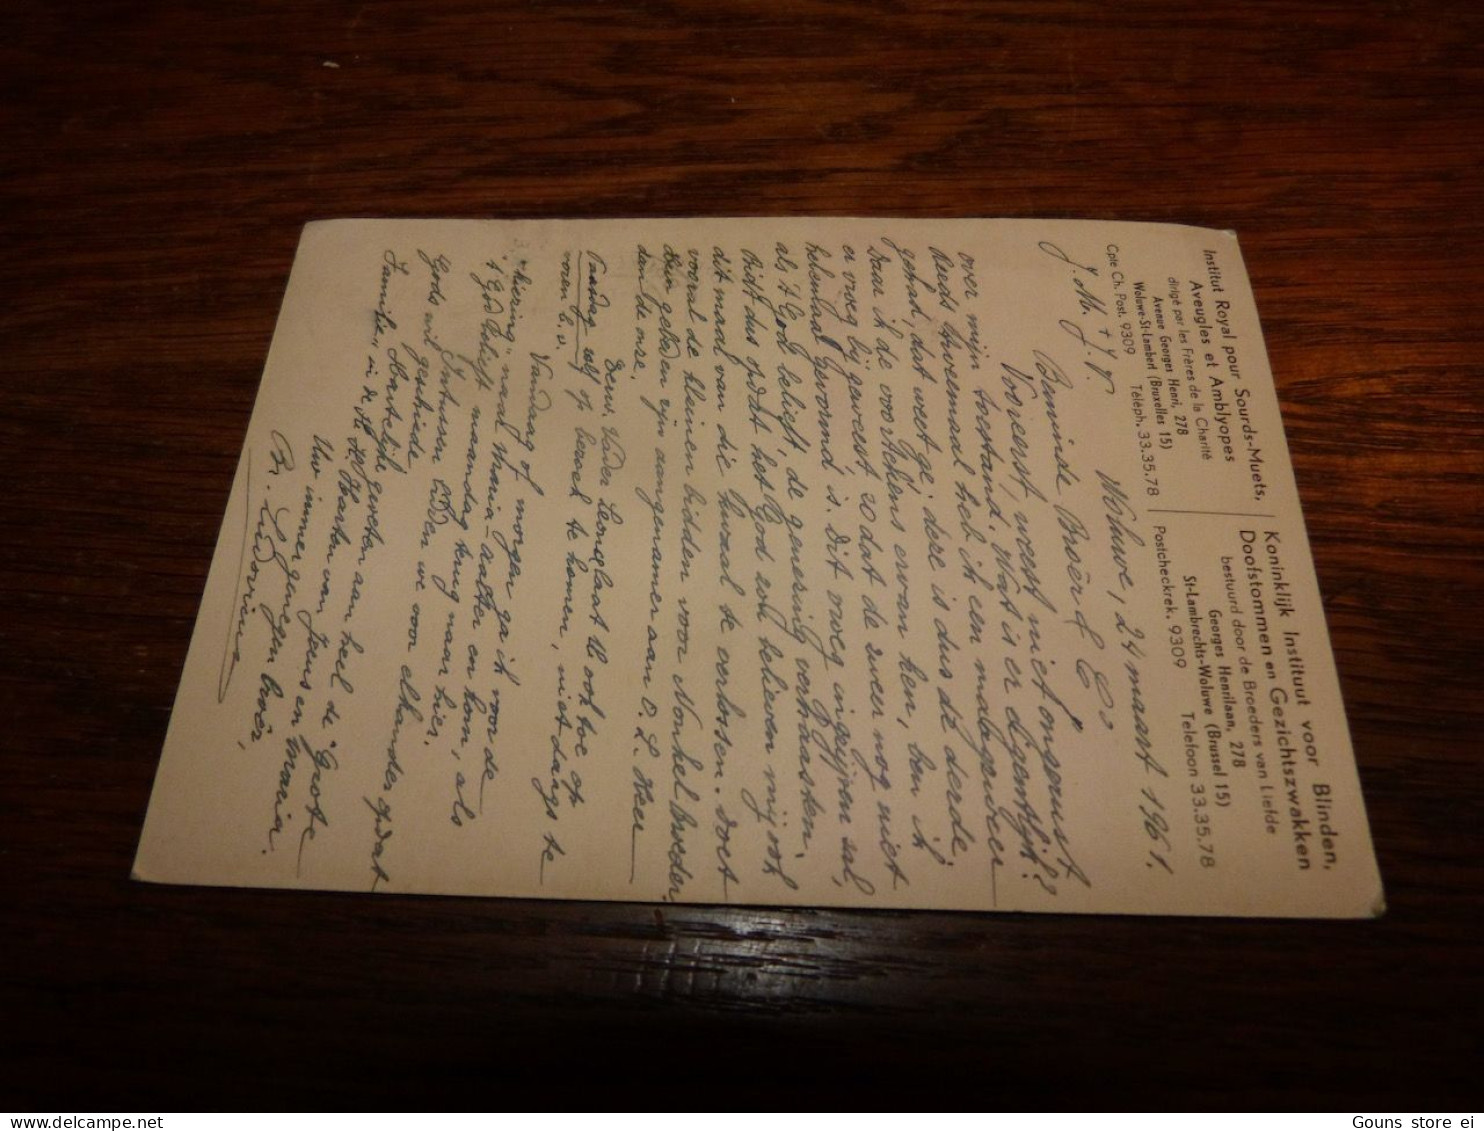 Institut Royal pour Sourds-Muets,
Aveugles et Amblyopes
dirigé par les Frères de la Charité
Avenue Georges Henri, 278
Woluwe-St-Lambert (Bruxelles 15)
Cpte Ch. Post. 9309 Téléph. 33.35.78
Koninklijk Instituut voor Blinden,
Doofstommen en Gezichtszwakken
bestuurd door de Broeders van Liefde
Georges Henrilaan, 278
St-Lambrechts-Woluwe (Brussel 15)
Postcheckrek. 9309 Telefoon 33.35.78
J. M. + J. Woluwe, 24 maart 1961.
Beminde Broeder
Vooreerst, weest niet ongerust
over mijn toestand. Wat is er eigentlijk?
Reeds tweemaal heb ik een maagzweer
gehad, dat weet ge; deze is dus de derde.
Daar ik de voortekens ervan ken, ben ik
er vroeg bij geweest zodat de zweer nog niet
helemaal gevormd is. Dit vroeg ingrijpen zal,
als 't God belieft, de genezing verhaasten.
Bidt dus opdat het God zou believen mij ook
ditmaal van die kwaal te verlossen. Doet
vooral de kleinen bidden voor Nonkel broeder.
gebeden zijn aangenamer aan O. L. Heer
dan de onze.
Eerw. Vader Longlaat U ook toe op
Paasdag zelf op bezoek te komen, niet dangs te
voren e.v.
Vandaag of morgen ga ik voor de
"kuring" naar Maria-aalter en kom, als
't God belieft maandag terug naar hier.
Intussen bidden we voor elkander opdat
Gods wil geschiede.
Hartelijke groeten aan heel de "Grote
Familie" in de
H. H. Harten van Jezus en Maria.
Uw immer genegen broer,
Br. Ludovicus
Gouns store ei